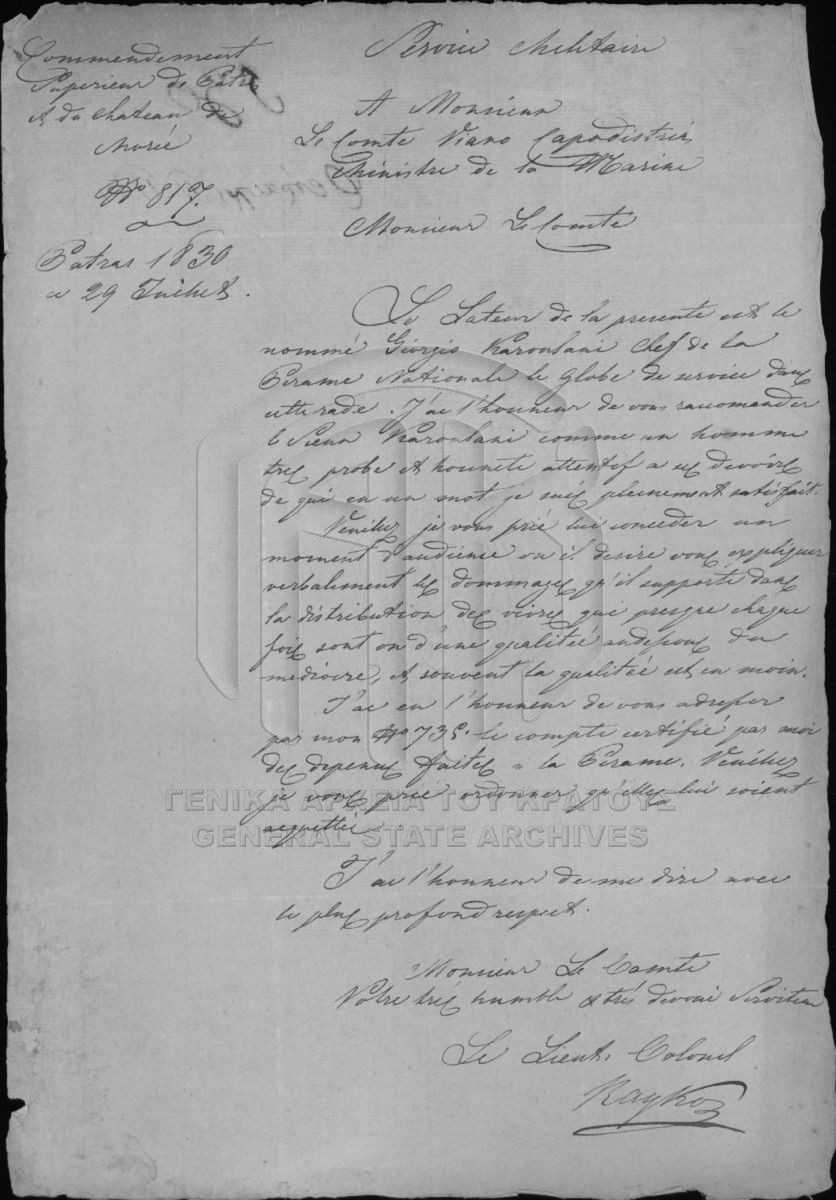 Commendement
Superieur de Patras
et du chateau de
Morée
No 817.
Patras 1830
ce 29 Juillet.
Service Militaire
A Monsieur
Le Comte Viaro Capodistrias
Ministre de la Marine
Monsieur Le Comte
Le Lateur de la presente est le
nommé Giorgio Karoulani Chef de la
Perame Nationale le Globe de service dans
cette rade. J'ai l'honneur de vous raccomender
le Sieur Karoulani comme un homme
tres probe et hounete attentif a ses devoirs
de qui en un mot je suis pleinement satisfait.
Veuillez je vous prie lui conceder un
moment d'audience ou il desire vous expliquer
verbalement les dommages qu'il supporte dans
la distribution des vivres que presque chaque
fois sont on d'une qualitée audessous du
mediocre, et souvent la qualitée est en moin.
J'ai eu l'honneur de vous adresser
par mon No 735. le compte certifié par moi
des depenses faites a la Perame. Veuillez
je vous prie ordonner qu'elles lui soient
acquittée.
J'ai l'honneur de me dire avec
le plus profond respect.
Monsieur Le Comte
Votre très humble et très devoué Serviteur
Le Lieut. Colonel
Rayko
ΓΕΝΙΚΑ ΑΡΧΕΙΑ ΤΟΥ ΚΡΑΤΟΥΣ
GENERAL STATE ARCHIVES